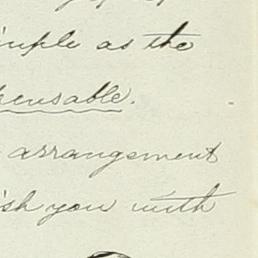 imple as the
pensable.
arrangement
ish you with